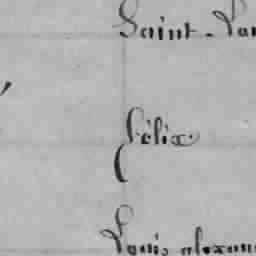 Saint-
Félix.
Louis alexan